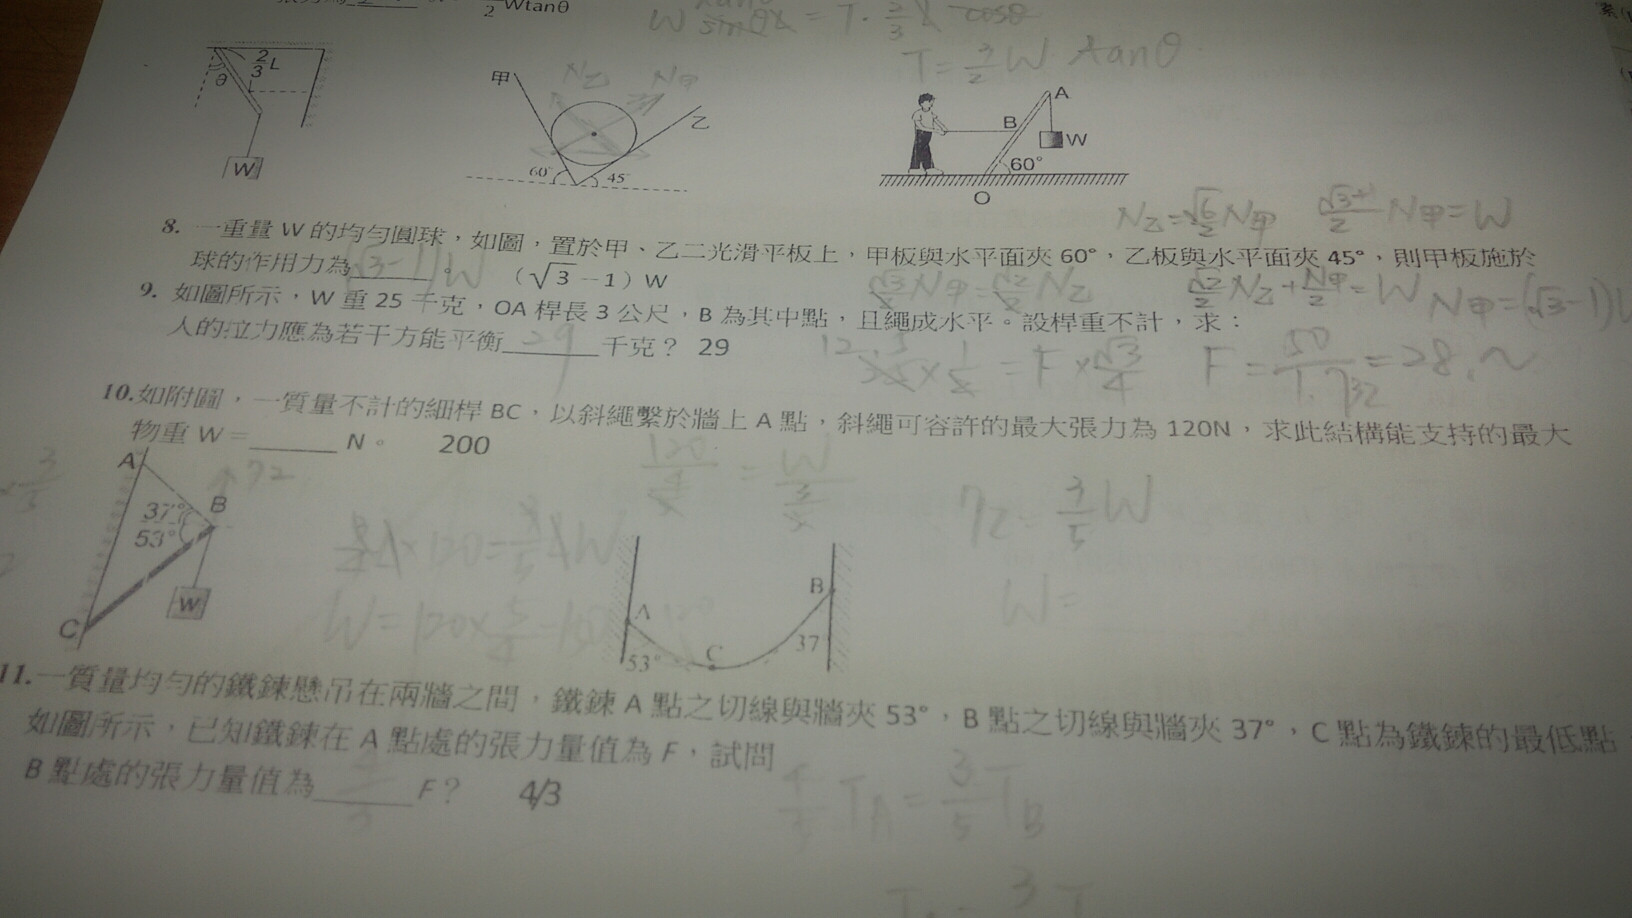 Wtanθ
2
W sinθ
= T ·
cosθ
T = 3/2 W tanθ
2/3 L
θ
W
甲
N乙
N甲
乙
60°
45°
A
B
W
60°
O
N乙 = √6/2 N甲
N甲 = W
8. 一重量 W 的均勻圓球，如圖，置於甲、乙二光滑平板上，甲板與水平面夾 60°，乙板與水平面夾 45°，則甲板施於
球的作用力為______。 (√3 −1) W
(√3-1)W
√3/2 N甲 = √2/2 N乙
√2/2 N乙 + N甲/2 = W
N甲 = (√3-1)
9. 如圖所示，W 重 25 千克，OA 桿長 3 公尺，B 為其中點，且繩成水平。設桿重不計，求：
人的拉力應為若干方能平衡______千克？ 29
29
= F × √3/4
F = 50/1.732 = 28.
10.如附圖，一質量不計的細桿 BC，以斜繩繫於牆上 A 點，斜繩可容許的最大張力為 120N，求此結構能支持的最大
物重 W＝______ N。 200
3/5
A
72
B
37°
53°
W
C
72 = 3/5 W
W =
A
B
53°
C
37
11.一質量均勻的鐵鍊懸吊在兩牆之間，鐵鍊 A 點之切線與牆夾 53°，B 點之切線與牆夾 37°，C 點為鐵鍊的最低點
如圖所示，已知鐵鍊在 A 點處的張力量值為 F，試問
B 點處的張力量值為______F？ 4/3
TA = 3/5 TB